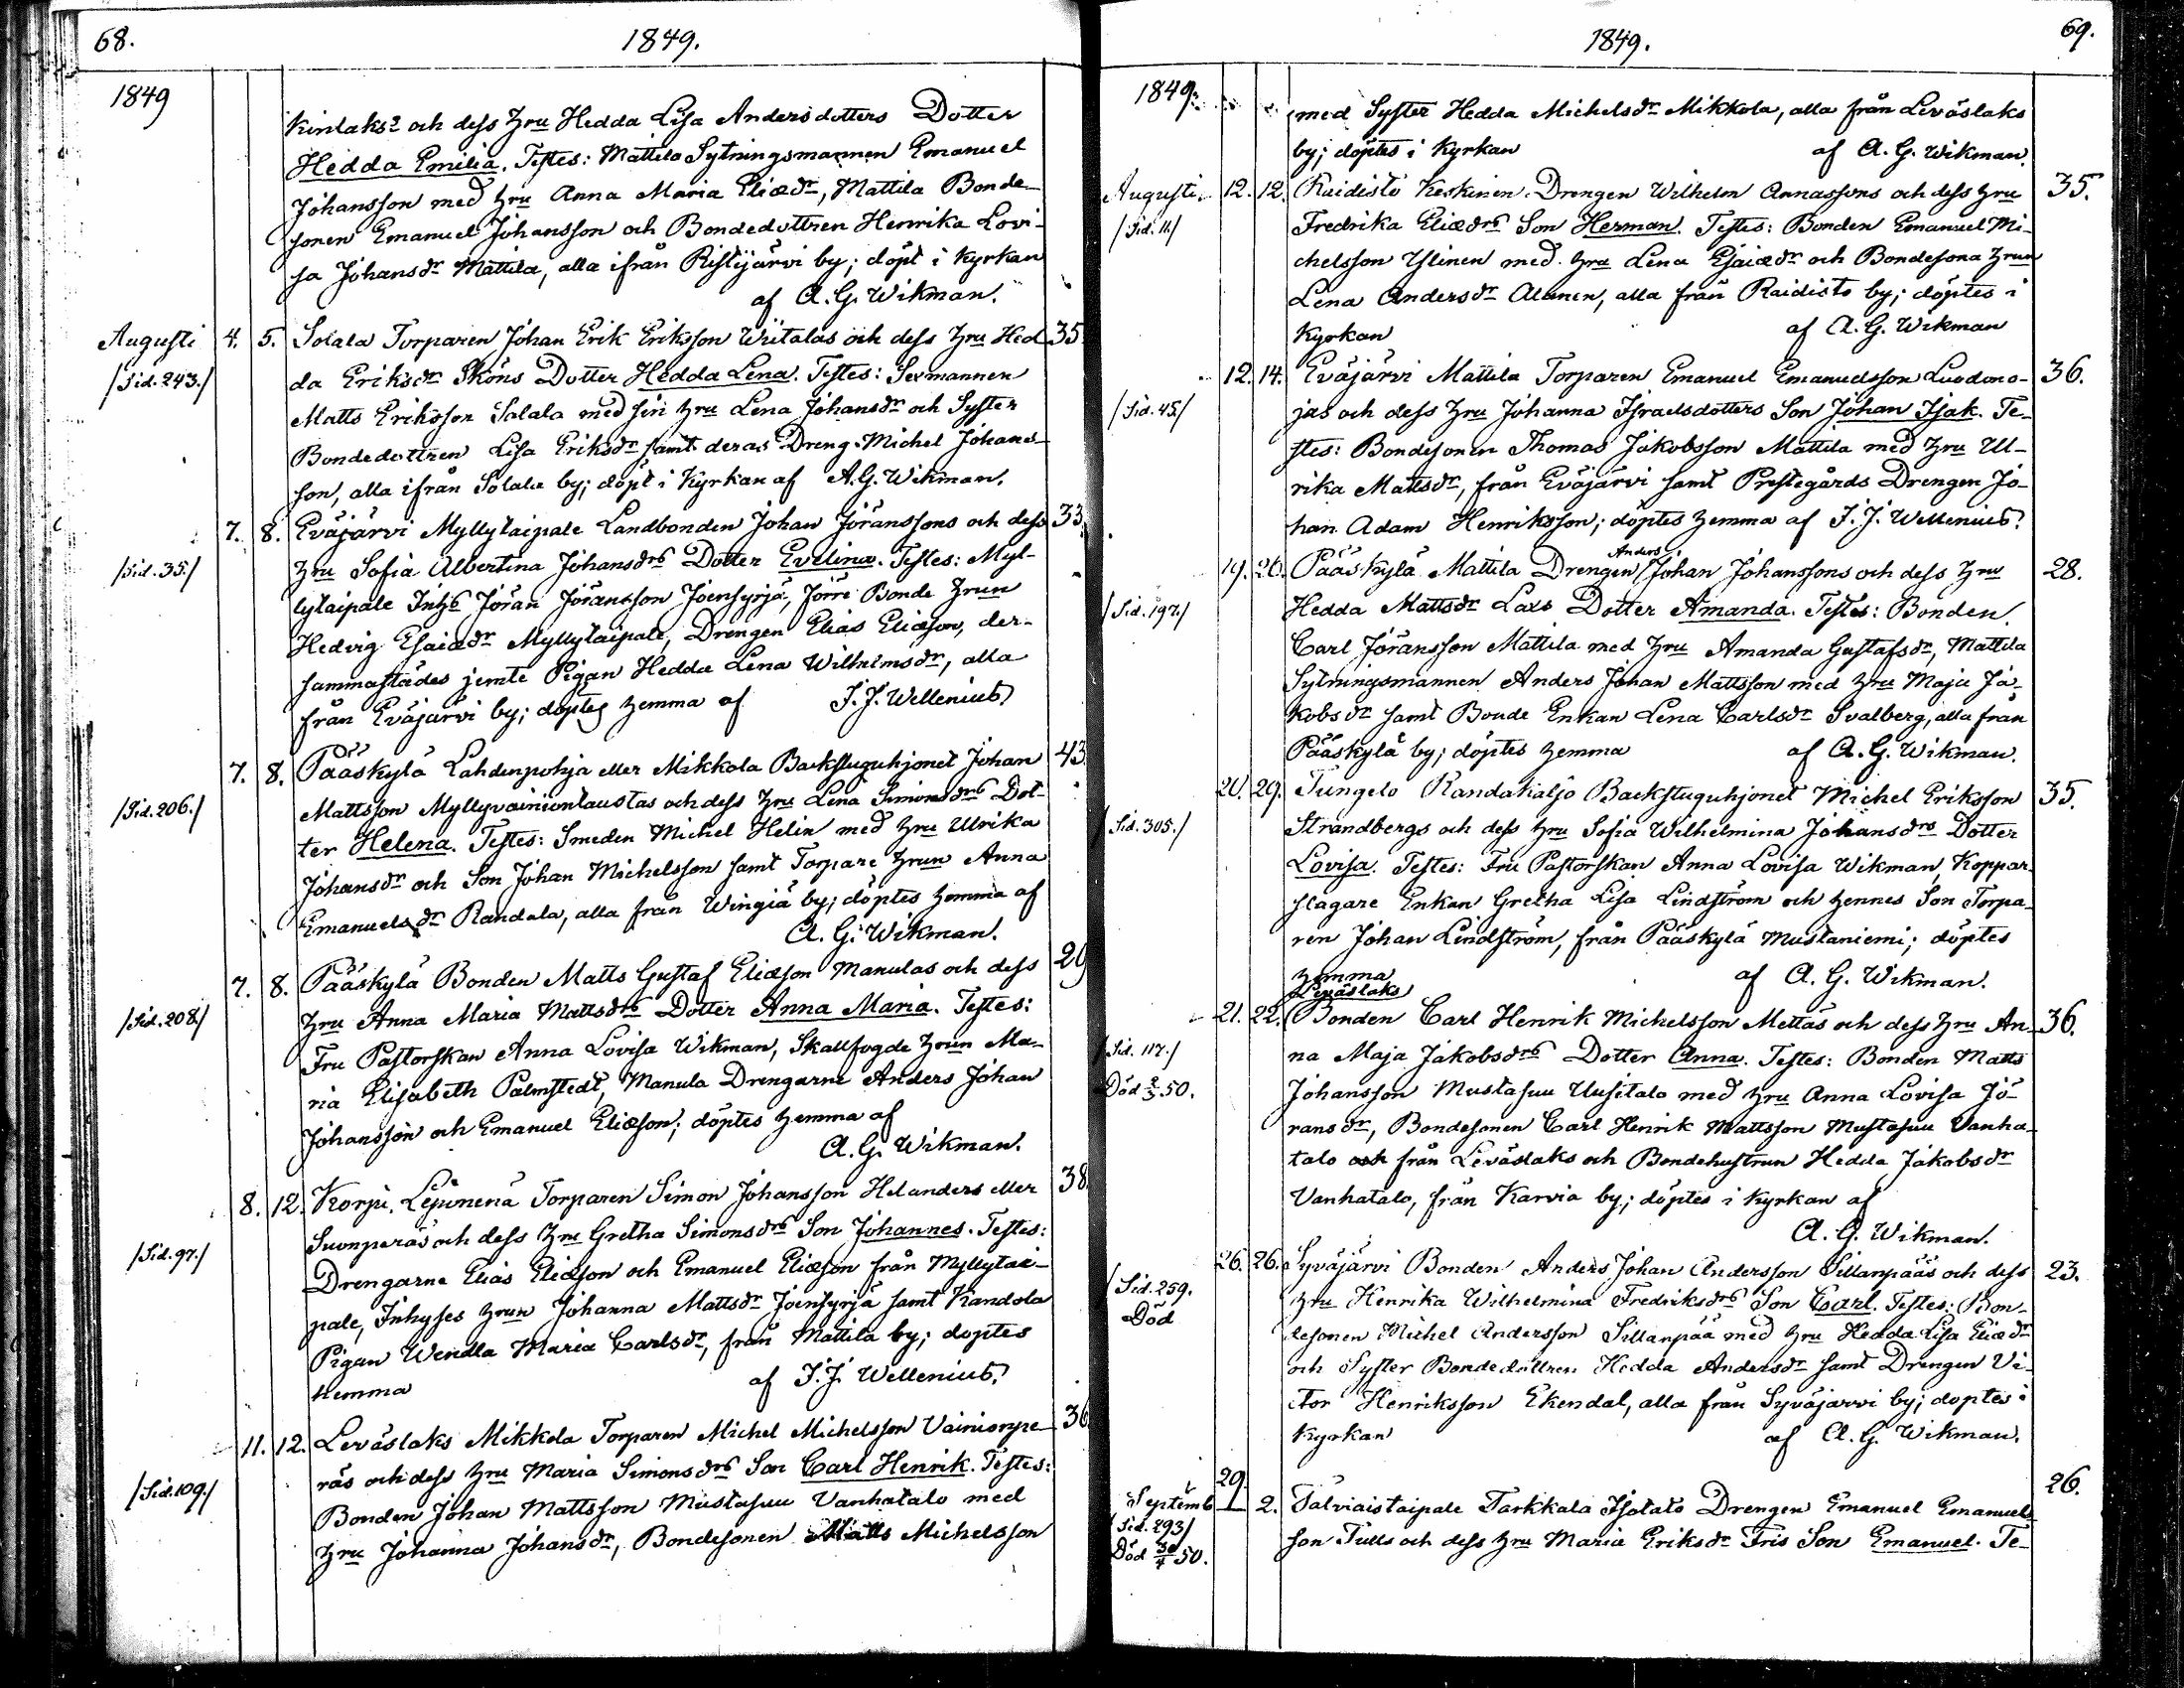 68.
1849.
1849
Kinlaks? och dess Hru Hedda Lisa Andersdotters Dotter
Hedda Emilia. Testes: Mattila Sytningsmannen Emanuel
Johansson med Hru Anna Maria Eliædr, Mattila Bonde-
sonen Emanuel Johansson och Bondedottren Henrika Lovi-
sa Johansdr Mattila, alla ifrån Ristijärvi by; döpt i Kyrkan
af A. G. Wikman.
Augusti 4. 5. Salala Torparen Johan Erik Eriksson Wiitalas och dess Hru Hed- 35
/Sid. 243./ da Eriksdr Sköns Dotter Hedda Lena. Testes: Sexmannen
Matts Eriksson Salala med sin Hru Lena Johansdr och Syster
Bondedottren Lisa Eriksdr samt deras Dreng Michel Johans-
son, alla ifrån Salala by; döpt i Kyrkan af A. G. Wikman.
7. 8. Eväjärvi Myllytaipale Landbonden Johan Jöranssons och dess 33.
/Sid. 35./ Hru Sofia Albertina Johansdrs Dotter Evelina. Testes: Myl-
lytaipale Inhs Jöran Jöransson Joensyrjä, Jörri Bonde Hrun
Hedvig Esaiædr Myllytaipale, Drengen Elias Eliæson, der-
sammastädes jemte Pigan Hedda Lena Wilhelmsdr, alla
från Eväjärvi by; döptes hemma af J. J. Wellenius.
7. 8. Pääskylä Lahdenpohja eller Mikkola Backstuguhjonet Johan 43
/Sid. 206./ Mattsson Myllyvainiontaustas och dess Hru Lena Simonsdrs Dot-
ter Helena. Testes: Smeden Michel Helin med Hru Ulrika
Johansdr och Son Johan Michelsson samt Torpare Hrun Anna
Emanuelsdr Randala, alla från Wingiä by; döptes hemma af
A. G. Wikman.
7. 8. Pääskylä Bonden Matts Gustaf Eliæson Manulas och dess 29
/Sid. 208./ Hru Anna Maria Mattsdrs Dotter Anna Maria. Testes:
Fru Pastorskan Anna Lovisa Wikman, Skallfogde Hrun Ma-
ria Elisabeth Palmstedt, Manula Drengarne Anders Johan
Johansson och Emanuel Eliæson; döptes hemma af
A. G. Wikman.
8. 12. Korpi Lepinenä Torparen Simon Johansson Helanders eller 38.
/Sid. 97./ Suonperäs och dess Hru Gretha Simonsdrs Son Johannes. Testes:
Drengarne Elias Eliæson och Emanuel Eliæson från Myllytai-
pale, Inhyses Hrun Johanna Mattsdr Joensyrjä samt Kandola
Pigan Wendla Maria Carlsdr, från Mattila by; döptes
hemma af J. J. Wellenius.
11. 12. Leväslaks Mikkola Torparen Michel Michelsson Vainionpe- 36
/Sid. 109./ räs och dess Hru Maria Simonsdrs Son Carl Henrik. Testes:
Bonden Johan Mattsson Mustasuu Vanhatalo med
Hru Johanna Johansdr, Bondesonen Matts Michelsson
1849.
69.
1849. med Syster Hedda Michelsdr Mikkola, alla från Leväslaks
by; döptes i Kyrkan af A. G. Wikman.
Augusti 12. 12. Raidisto Keskinen Drengen Wilhelm Annassons och dess Hru 35.
/Sid. 11./ Fredrika Eliædrs Son Herman. Testes: Bonden Emanuel Mi-
chelsson Ylinen med Hru Lena Esaiædr och Bondesona Hrun
Lena Andersdr Alanen, alla från Raidisto by; döptes i
Kyrkan af A. G. Wikman
12. 14. Eväjärvi Mattila Torparen Emanuel Emanuelsson Luodono- 36.
/Sid. 45./ jas och dess Hru Johanna Israelsdotters Son Johan Isak. Te-
stes: Bondesonen Thomas Jakobsson Mattila med Hru Ul-
rika Mattsdr, från Eväjärvi samt Prestegårds Drengen Jo-
han Adam Henriksson; döptes hemma af J. J. Wellenius.
Anders
19. 26. Pääskylä Mattila Drengen Johan Johanssons och dess Hru 28.
/Sid. 197./ Hedda Mattsdr Laxs Dotter Amanda. Testes: Bonden
Carl Jöransson Mattila med Hru Amanda Gustafsdr, Mattila
Sytningsmannen Anders Johan Mattsson med Hru Maja Ja-
kobsdr samt Bonde Enkan Lena Carlsdr Svalberg, alla från
Pääskylä by; döptes hemma af A. G. Wikman.
20. 29. Tungelo Randakaljo Backstuguhjonet Michel Eriksson 35.
/Sid. 305./ Strandbergs och dess Hru Sofia Wilhelmina Johansdrs Dotter
Lovisa. Testes: Fru Pastorskan Anna Lovisa Wikman, Koppar-
slagare Enkan Gretha Lisa Lindström och hennes Son Torpa-
ren Johan Lindström, från Pääskylä Mustaniemi; döptes
hemma af A. G. Wikman.
Leväslaks
21. 22. Bonden Carl Henrik Michelsson Mettäs och dess Hru An- 36.
/Sid. 117./ na Maja Jakobsdrs Dotter Anna. Testes: Bonden Matts
Död 2/3 50. Johansson Mustasuu Uusitalo med Hru Anna Lovisa Jö-
ransdr, Bondesonen Carl Henrik Mattsson Mustasuu Vanha-
talo och från Leväslaks och Bondehustrun Hedda Jakobsdr
Vanhatalo, från Karvia by; döptes i Kyrkan af
A. G. Wikman.
26. 26. Syväjärvi Bonden Anders Johan Andersson Sillanpääs och dess 23.
/Sid. 259. Hru Henrika Wilhelmina Fredriksdrs Son Carl. Testes: Bon-
Död desonen Michel Andersson Sillanpää med Hru Hedda Lisa Eliædr
och Syster Bondedottren Hedda Andersdr samt Drengen Vi-
ctor Henriksson Ekendal, alla från Syväjärvi by; döptes i
Kyrkan af A. G. Wikman.
29.
Septemb. 2. Talviaistaipale Tarkkala Isotalo Drengen Emanuel Emanuels- 26.
/Sid. 293/ son Tulls och dess Hru Maria Eriksdr Fris Son Emanuel. Te-
Död 30/4 50.